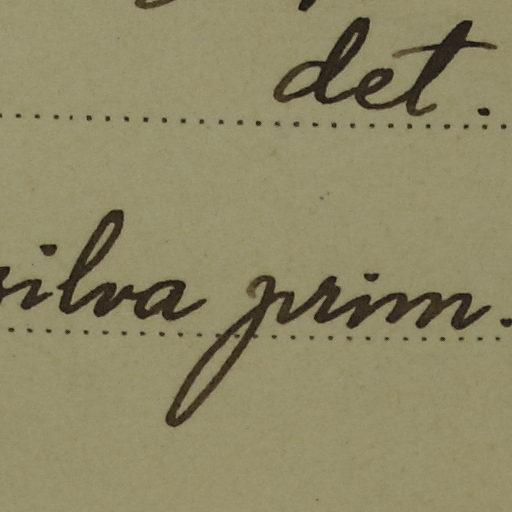 det.
silva prim.